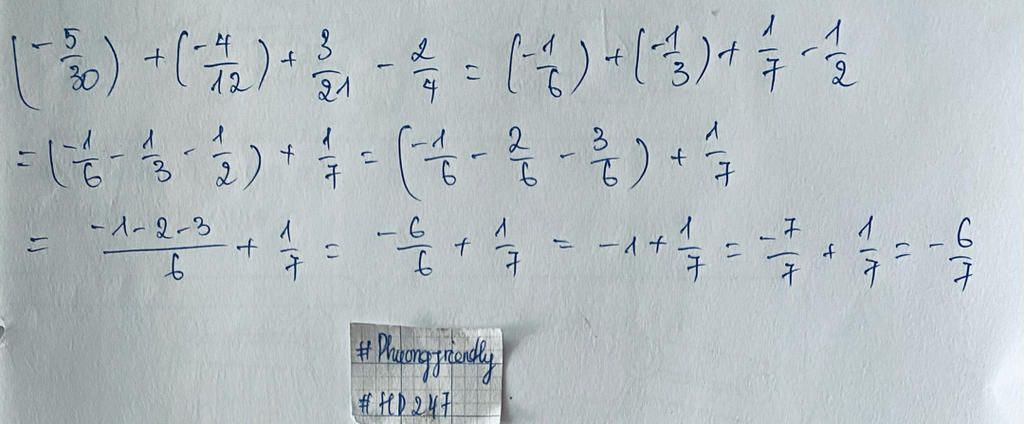 (-5/30) + (-4/12) + 3/21 - 2/4 = (-1/6) + (-1/3) + 1/7 - 1/2
= (-1/6 - 1/3 - 1/2) + 1/7 = (-1/6 - 2/6 - 3/6) + 1/7
= -1-2-3/6 + 1/7 = -6/6 + 1/7 = -1 + 1/7 = -7/7 + 1/7 = -6/7
#Phuongfriendly
#HD247